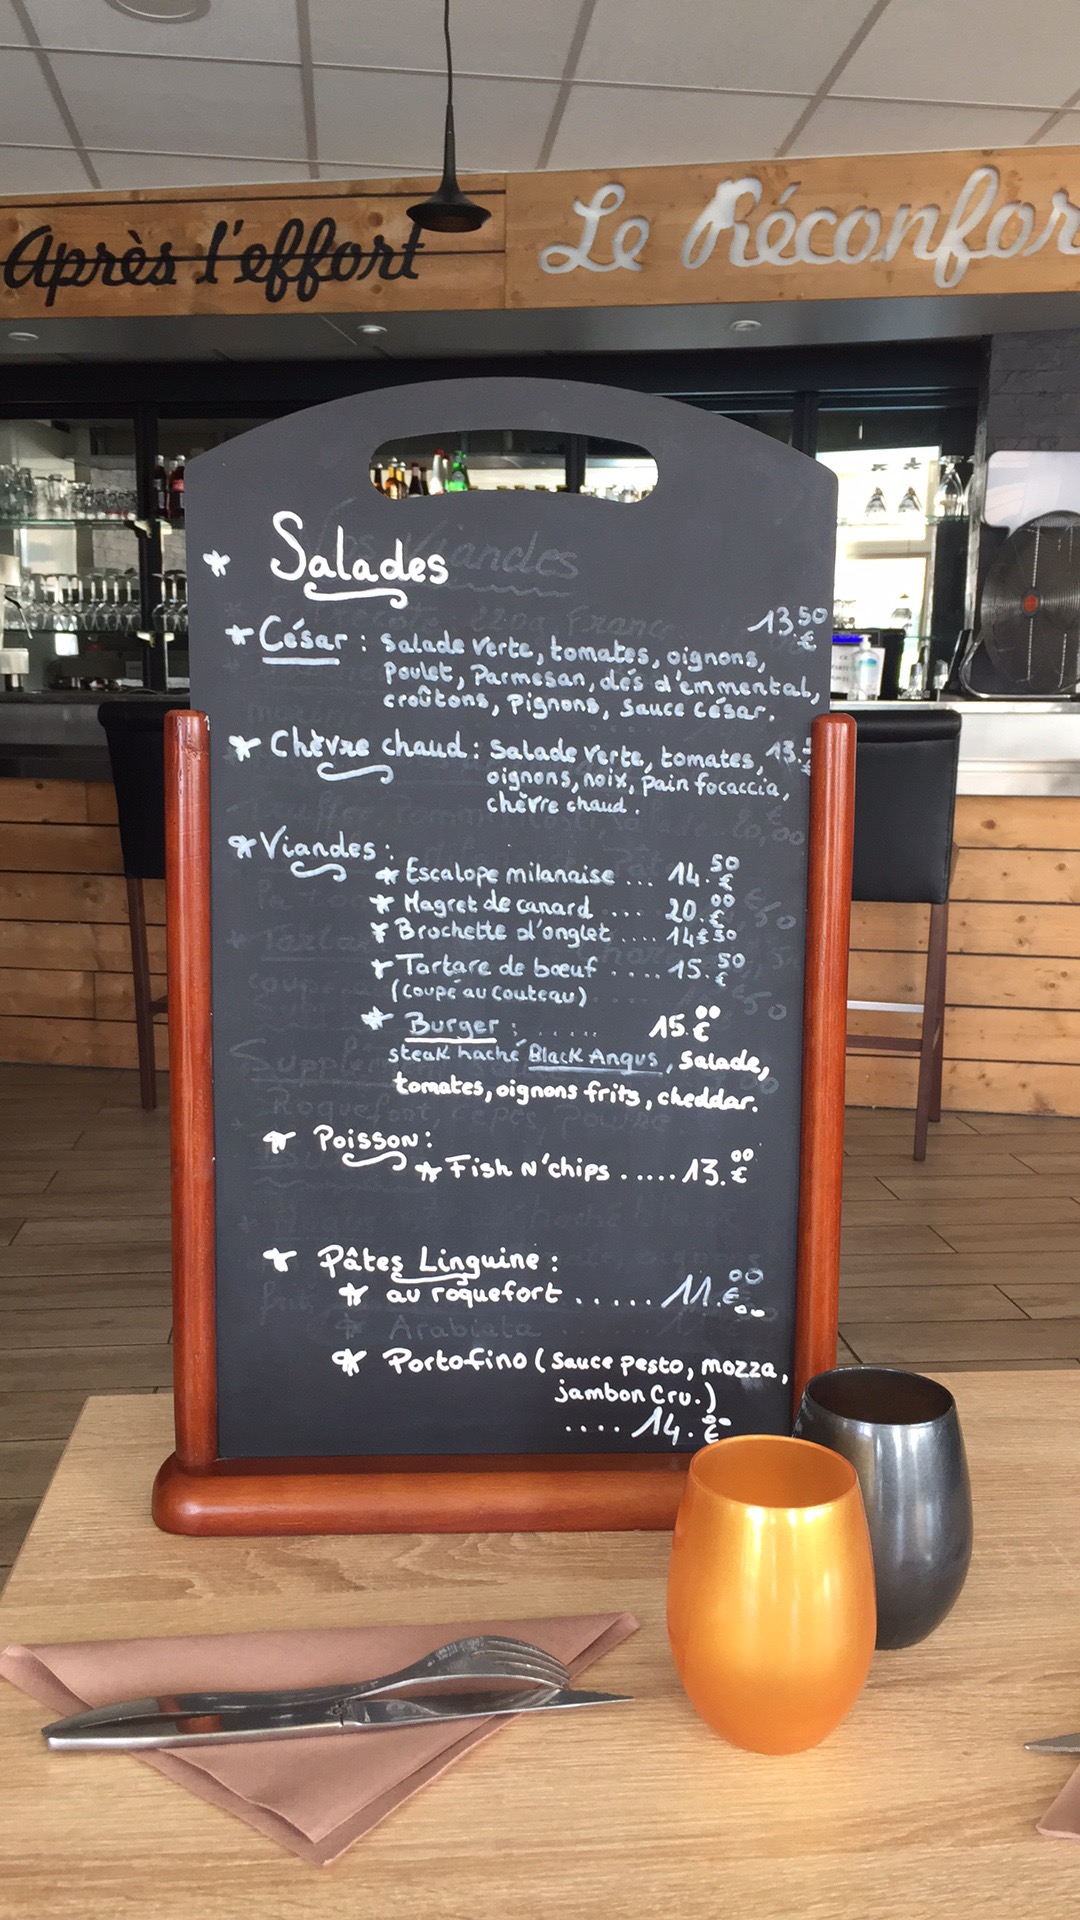 Après l'effort
Le Réconfor
* Salades
* César : Salade verte, tomates, oignons, 13.50 €
Poulet, Parmesan, dés d'emmental,
croûtons, Pignons, sauce césar.
* Chèvre chaud : Salade verte, tomates, 13.
oignons, noix, pain focaccia,
chèvre chaud.
* Viandes :
* Escalope milanaise ... 14.50 €
* Magret de canard .... 20.00 €
* Brochette d'onglet .... 14€50
* Tartare de bœuf ..... 15.50 €
(coupé au couteau)
* Burger : ..... 15.00 €
steak haché Black Angus, salade,
tomates, oignons frits, cheddar.
* Poisson :
* Fish N'chips ..... 13.00 €
* Pâtes Linguine :
* au roquefort ..... 11.00 €
* Arabiata
* Portofino (sauce pesto, mozza,
jambon Cru.)
.... 14. €